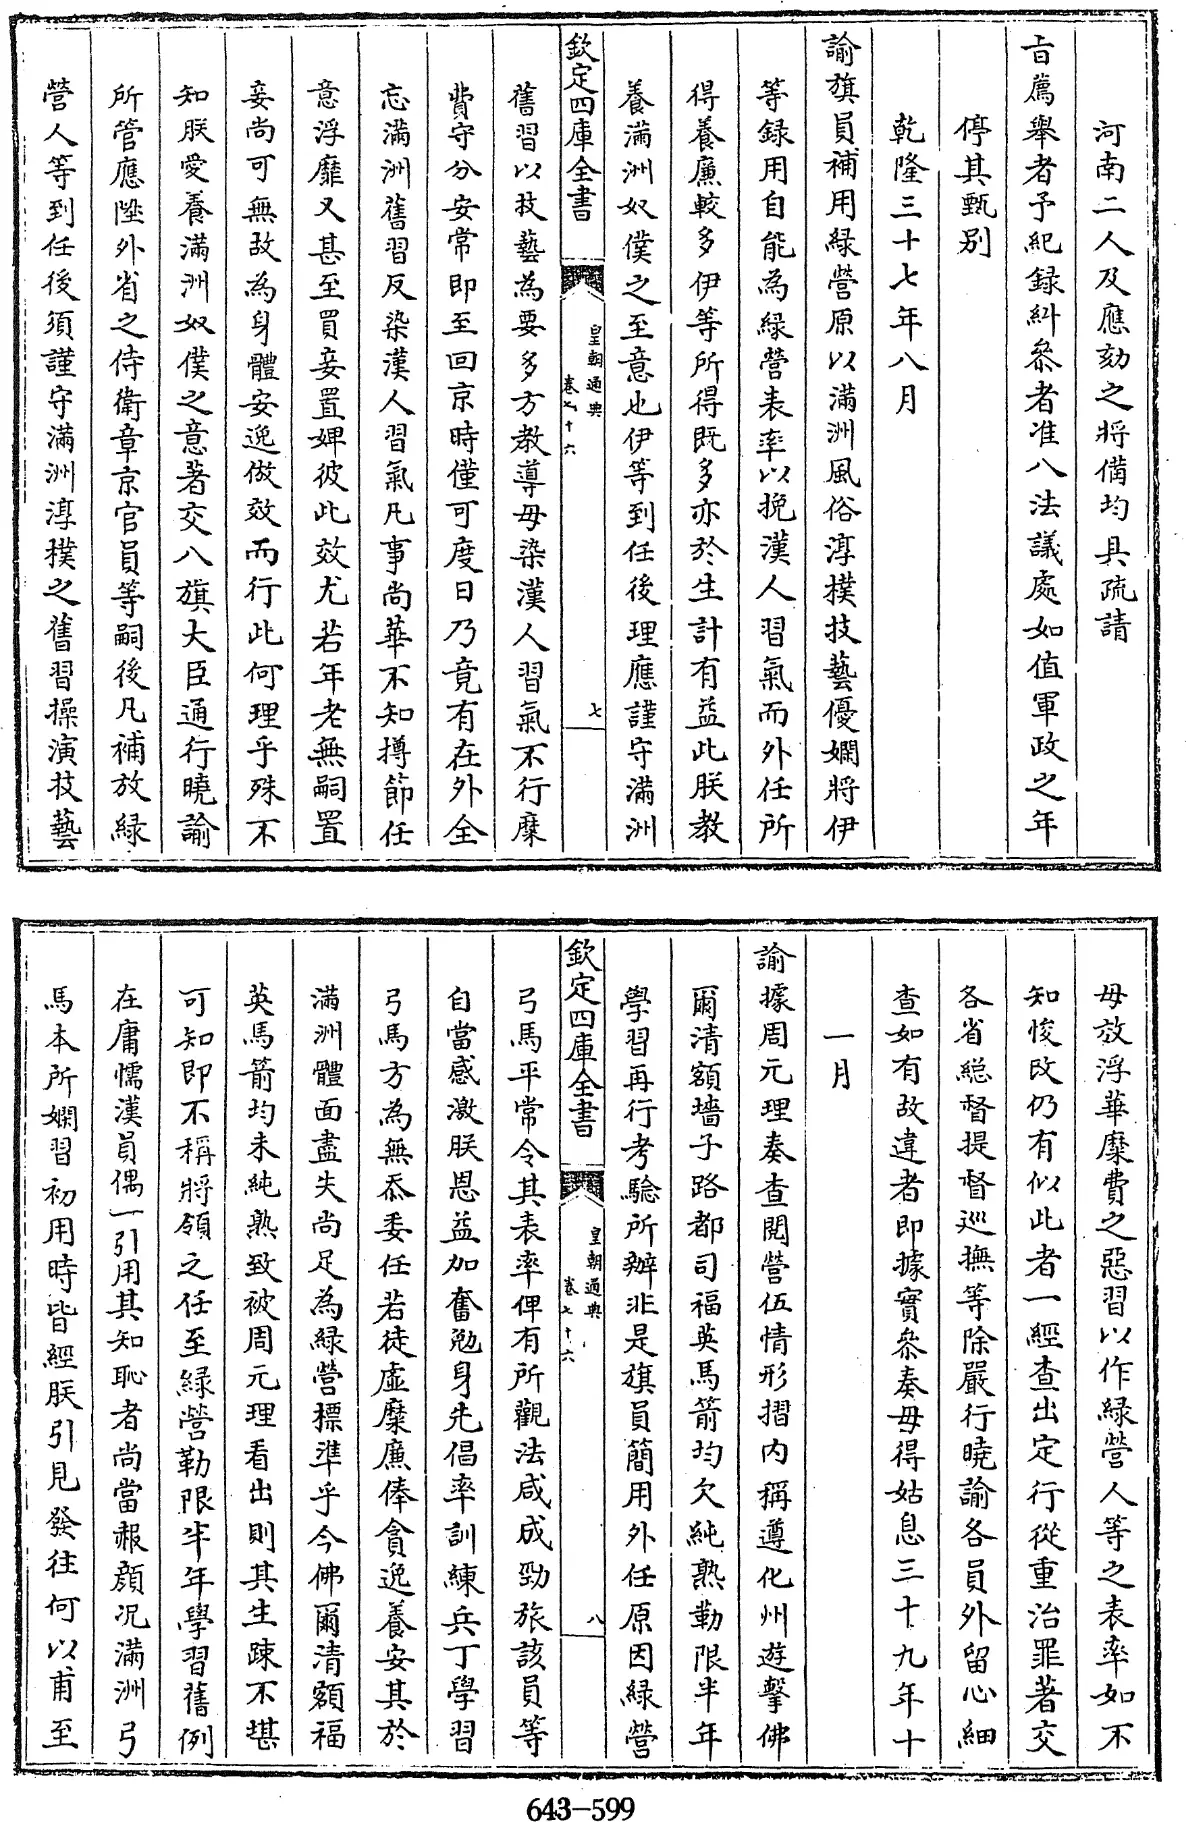 河南二人及應劾之將備均具疏請
旨薦舉者予紀録糾叅者准八法議處如值軍政之年
停其甄别
乾隆三十七年八月
諭旗員補用緑營原以滿洲風俗淳樸技藝優嫻將伊
等録用自能為緑營表率以挽漢人習氣而外任所
得養廉較多伊等所得既多亦於生計有益此朕教
養滿洲奴僕之至意也伊等到任後理應謹守滿洲
欽定四庫全書
皇朝通典
卷七十六
七
舊習以技藝為要多方教導毋染漢人習氣不行糜
費守分安常即至回京時僅可度日乃竟有在外全
忘滿洲舊習反染漢人習氣凡事尚華不知撙節任
意浮靡又甚至買妾置婢彼此效尤若年老無嗣置
妾尚可無故為身體安逸做效而行此何理乎殊不
知朕愛養滿洲奴僕之意著交八旗大臣通行曉諭
所管應陞外省之侍衛章京官員等嗣後凡補放緑
營人等到任後須謹守滿洲淳樸之舊習操演技藝
毋效浮華糜費之惡習以作緑營人等之表率如不
知悛改仍有似此者一經查出定行從重治罪著交
各省總督提督巡撫等除嚴行曉諭各員外留心細
查如有故違者即據實叅奏毋得姑息三十九年十
一月
諭據周元理奏查閲營伍情形摺内稱遵化州遊擊佛
爾清額墻子路都司福英馬箭均欠純熟勒限半年
學習再行考驗所辦非是旗員簡用外任原因緑營
欽定四庫全書
皇朝通典
卷七十六
八
弓馬平常令其表率俾有所觀法咸成勁旅該員等
自當感激朕恩益加奮勉身先倡率訓練兵丁學習
弓馬方為無忝委任若徒虚糜廉俸貪逸養安其於
滿洲體面盡失尚足為緑營標準乎今佛爾清額福
英馬箭均未純熟致被周元理看出則其生踈不堪
可知即不稱將領之任至緑營勒限半年學習舊例
在庸懦漢員偶一引用其知恥者尚當赧顔况滿洲弓
馬本所嫻習初用時皆經朕引見發往何以甫至
643-599